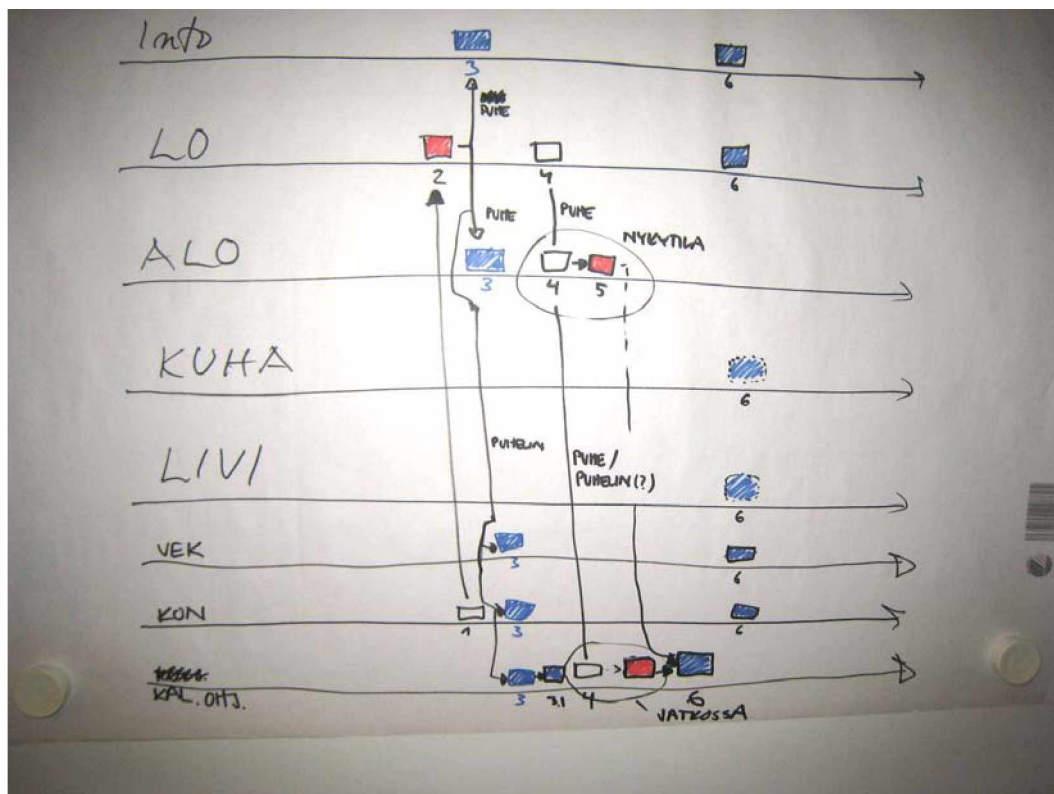 Info
3
6
PUHE
LO
2
4
6
PUHE
PUHE
NYKYTILA
ALO
3
4
5
KUHA
6
PUHELIN
PUHE /
PUHELIN (?)
LIVI
6
VEK
3
6
KON
1
3
6
KAL. OHJ.
3
3.1
4
6
JATKOSSA